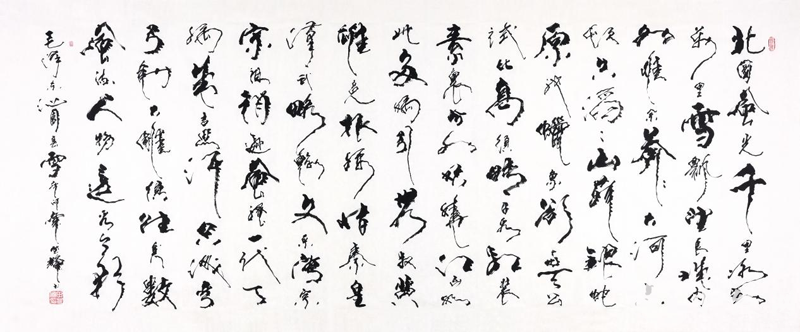 北国风光千里冰封
万里雪飘望长城内
外惟余莽莽大河上下
顿失滔滔山舞银蛇
原驰蜡象欲与天公
试比高须晴日看红装
素裹分外妖娆江山如
此多娇引无数英雄
竞折腰惜秦皇
汉武略输文采唐宗
宋祖稍逊风骚一代天
骄成吉思汗只识弯
弓射大雕俱往矣数
风流人物还看今朝
毛泽东沁园春雪